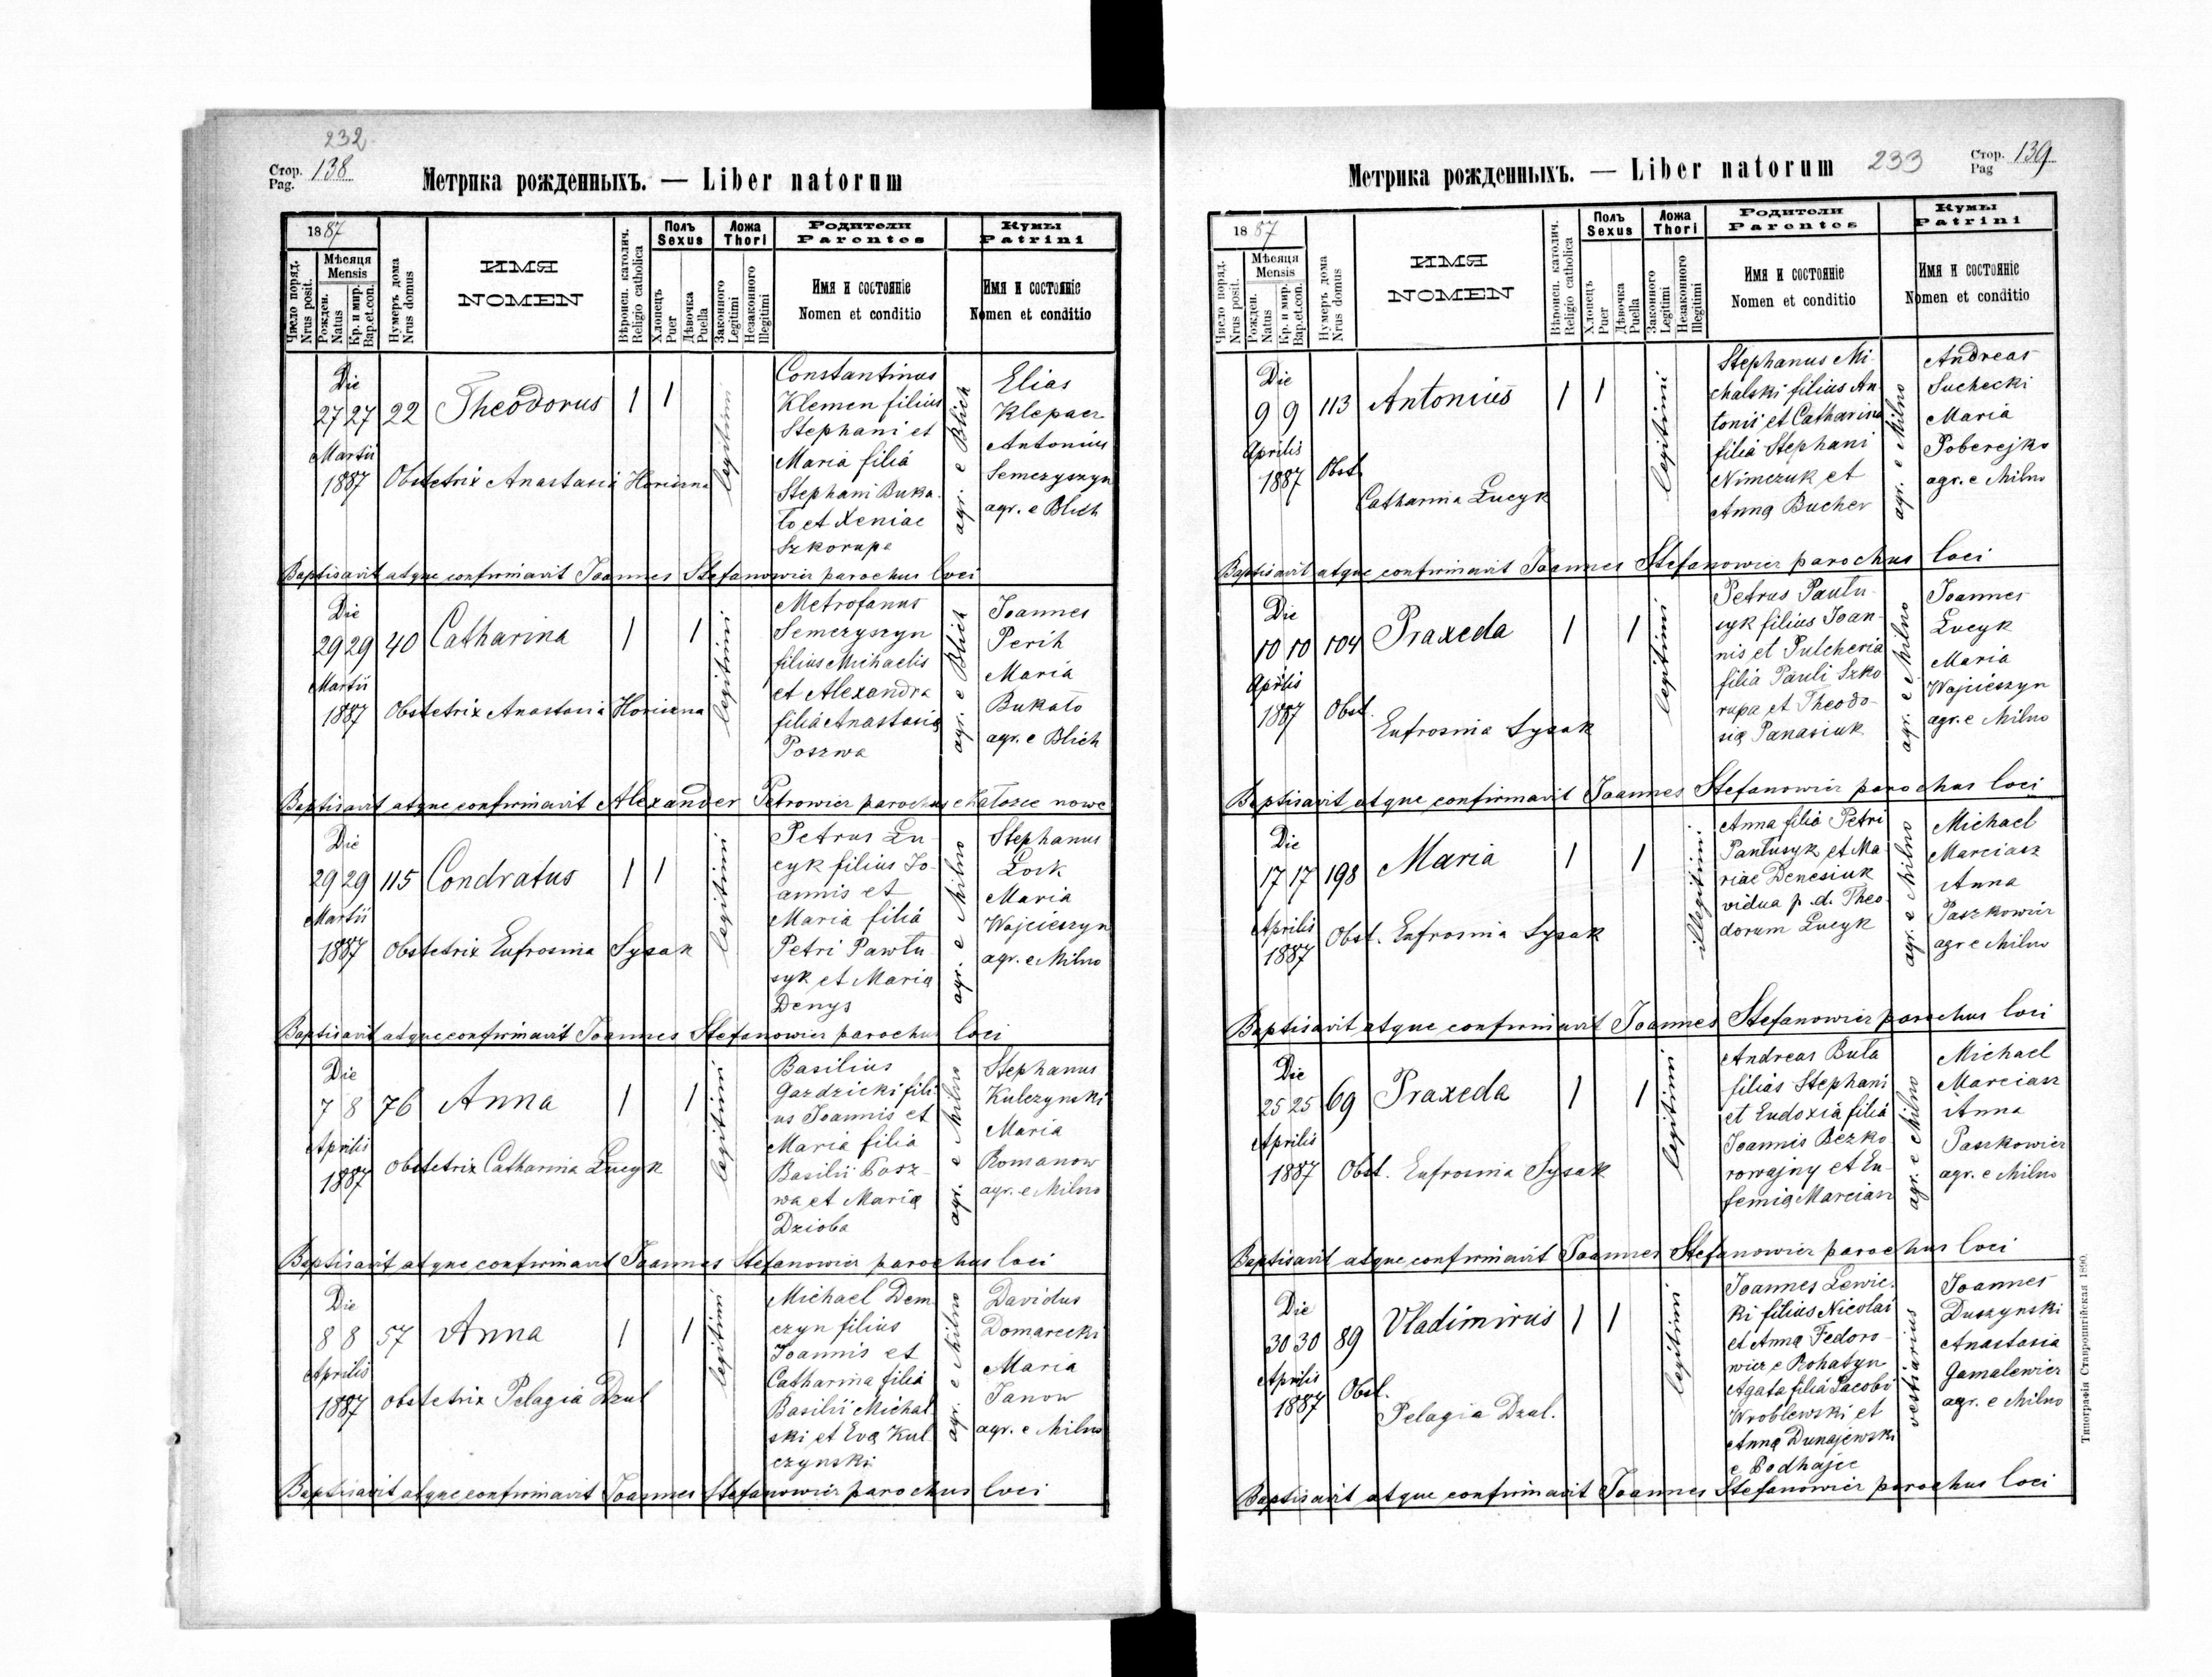 232
Стор. 138
Pag.
Метрика рожденныхъ. — Liber natorum
1887
Число поряд.
Nrus posit.
Мѣсяця
Mensis
Рожден.
Natus
Кр. и мир.
Bap.et.con.
Нумеръ дома
Nrus domus
ИМЯ
NOMEN
Вѣроисп. католич.
Religio catholica
Полъ
Sexus
Хлопецъ
Puer
Дѣвочка
Puella
Ложа
Thori
Законного
Legitimi
Незаконного
Illegitimi
Родители
Parentes
Имя и состояніе
Nomen et conditio
Кумы
Patrini
Имя и состояніе
Nomen et conditio
Die
27 27 22 Theodorus 1 1
Martii
1887 Obstetrix Anastasia
legitimi
Constantinus
Klemen filius
Stephani et
Maria filia
Stephani Buka-
ło et Xeniae
Szkorupa
agr. e Blich
Elias
Klepacz
Antonius
Semczyszyn
agr. e Blich
Baptisavit atque confirmavit Joannes Stefanowicz parochus loci
Die
29 29 40 Catharina 1 1
Martii
1887 Obstetrix Anastasia
legitimi
Metrofanus
Semczyszyn
filius Michaelis
et Alexandra
filia Anastasia
Poszwa
agr. e Blich
Joannes
Perih
Maria
Bukało
agr. e Blich
Baptisavit atque confirmavit Alexander Petrowicz parochus e Załosce nowe
Die
29 29 115 Condratus 1 1
Martii
1887 Obstetrix Eufrosina Sysak
legitimi
Petrus Lu-
cyk filius Jo-
annis et
Maria filia
Petri Pawlu-
syk et Maria
Denys
agr. e Milno
Stephanus
Maria
Wojciszyn
agr. e Milno
Baptisavit atque confirmavit Joannes Stefanowicz parochus loci
Die
7 8 76 Anna 1 1
Aprilis
1887 Obstetrix Catharina Lucyk
legitimi
Basilius
Gazdzicki fili-
us Joannis et
Maria filia
Basilii Posz-
wa et Maria
Dzioba
agr. e Milno
Stephanus
Kulczynski
Maria
Romanow
agr. e Milno
Baptisavit atque confirmavit Joannes Stefanowicz parochus loci
Die
8 8 57 Anna 1 1
Aprilis
1887 obstetrix Pelagia Dzul
legitimi
Michael Dem-
czyn filius
Joannis et
Catharina filia
Basilii Michal-
ski et Eva Kul-
czynski
agr. e Milno
Davidus
Domarecki
Maria
Janow
agr. e Milno
Baptisavit atque confirmavit Joannes Stefanowicz parochus loci
Метрика рожденныхъ. — Liber natorum 233
Стор. 139
Pag
1887
Число поряд.
Nrus posit.
Мѣсяця
Mensis
Рожден.
Natus
Кр. и мир.
Bap.et.con.
Нумеръ дома
Nrus domus
ИМЯ
NOMEN
Вѣроисп. католич.
Religio catholica
Полъ
Sexus
Хлопецъ
Puer
Дѣвочка
Puella
Ложа
Thori
Законного
Legitimi
Незаконного
Illegitimi
Родители
Parentes
Имя и состояніе
Nomen et conditio
Кумы
Patrini
Имя и состояніе
Nomen et conditio
Die
9 9 113 Antonius 1 1
Aprilis
1887 Obst.
Catharina Lucyk
legitimi
Stephanus Mi-
chalski filius An-
tonii et Catharina
filia Stephani
Nimczuk et
Anna Bucher
agr. e Milno
Andreas
Suchecki
Maria
Poberejko
agr. e Milno
Baptisavit atque confirmavit Joannes Stefanowicz parochus loci
Die
10 10 104 Praxeda 1 1
Aprilis
1887 Obst.
Eufrosina Sysak
legitimi
Petrus Pautu-
syk filius Joan-
nis et Pulcheria
filia Pauli Szko-
rupa et Theodo-
sia Panasiuk
agr. e Milno
Joannes
Lucyk
Maria
Wojciszyn
agr. e Milno
Baptisavit atque confirmavit Joannes Stefanowicz parochus loci
Die
17 17 198 Maria 1 1
Aprilis
1887 Obst. Eufrosina Sysak
illegitimi
Anna filia Petri
Pantusyk et Ma-
riae Denesiuk
vidua p. d. Theo-
dorum Lucyk
agr. e Milno
Michael
Marciasz
Anna
Paszkowicz
agr e Milno
Baptisavit atque confirmavit Joannes Stefanowicz parochus loci
Die
25 25 69 Praxeda 1 1
Aprilis
1887 Obst. Eufrosina Sysak
legitimi
Andreas Buła
filius Stephani
et Eudoxia filia
Joannis Bezko-
rowajny et Eu-
femia Marciasz
agr. e Milno
Michael
Marciasz
Anna
Paszkowicz
agr. e Milno
Baptisavit atque confirmavit Joannes Stefanowicz parochus loci
Die
30 30 89 Vladimirus 1 1
Aprilis
1887 Obst.
Pelagia Dzul.
legitimi
Joannes Lewic-
ki filius Nicolai
et Anna Fedoro-
wicz e Rohatyn
Agata filia Jacobi
Wroblewski et
Anna Dunajewski
e Podhajce
vestiarius
Joannes
Duszynski
Anastasia
Gamalewicz
agr. e Milno
Baptisavit atque confirmavit Joannes Stefanowicz parochus loci
Типографія Ставропигійская 1880.